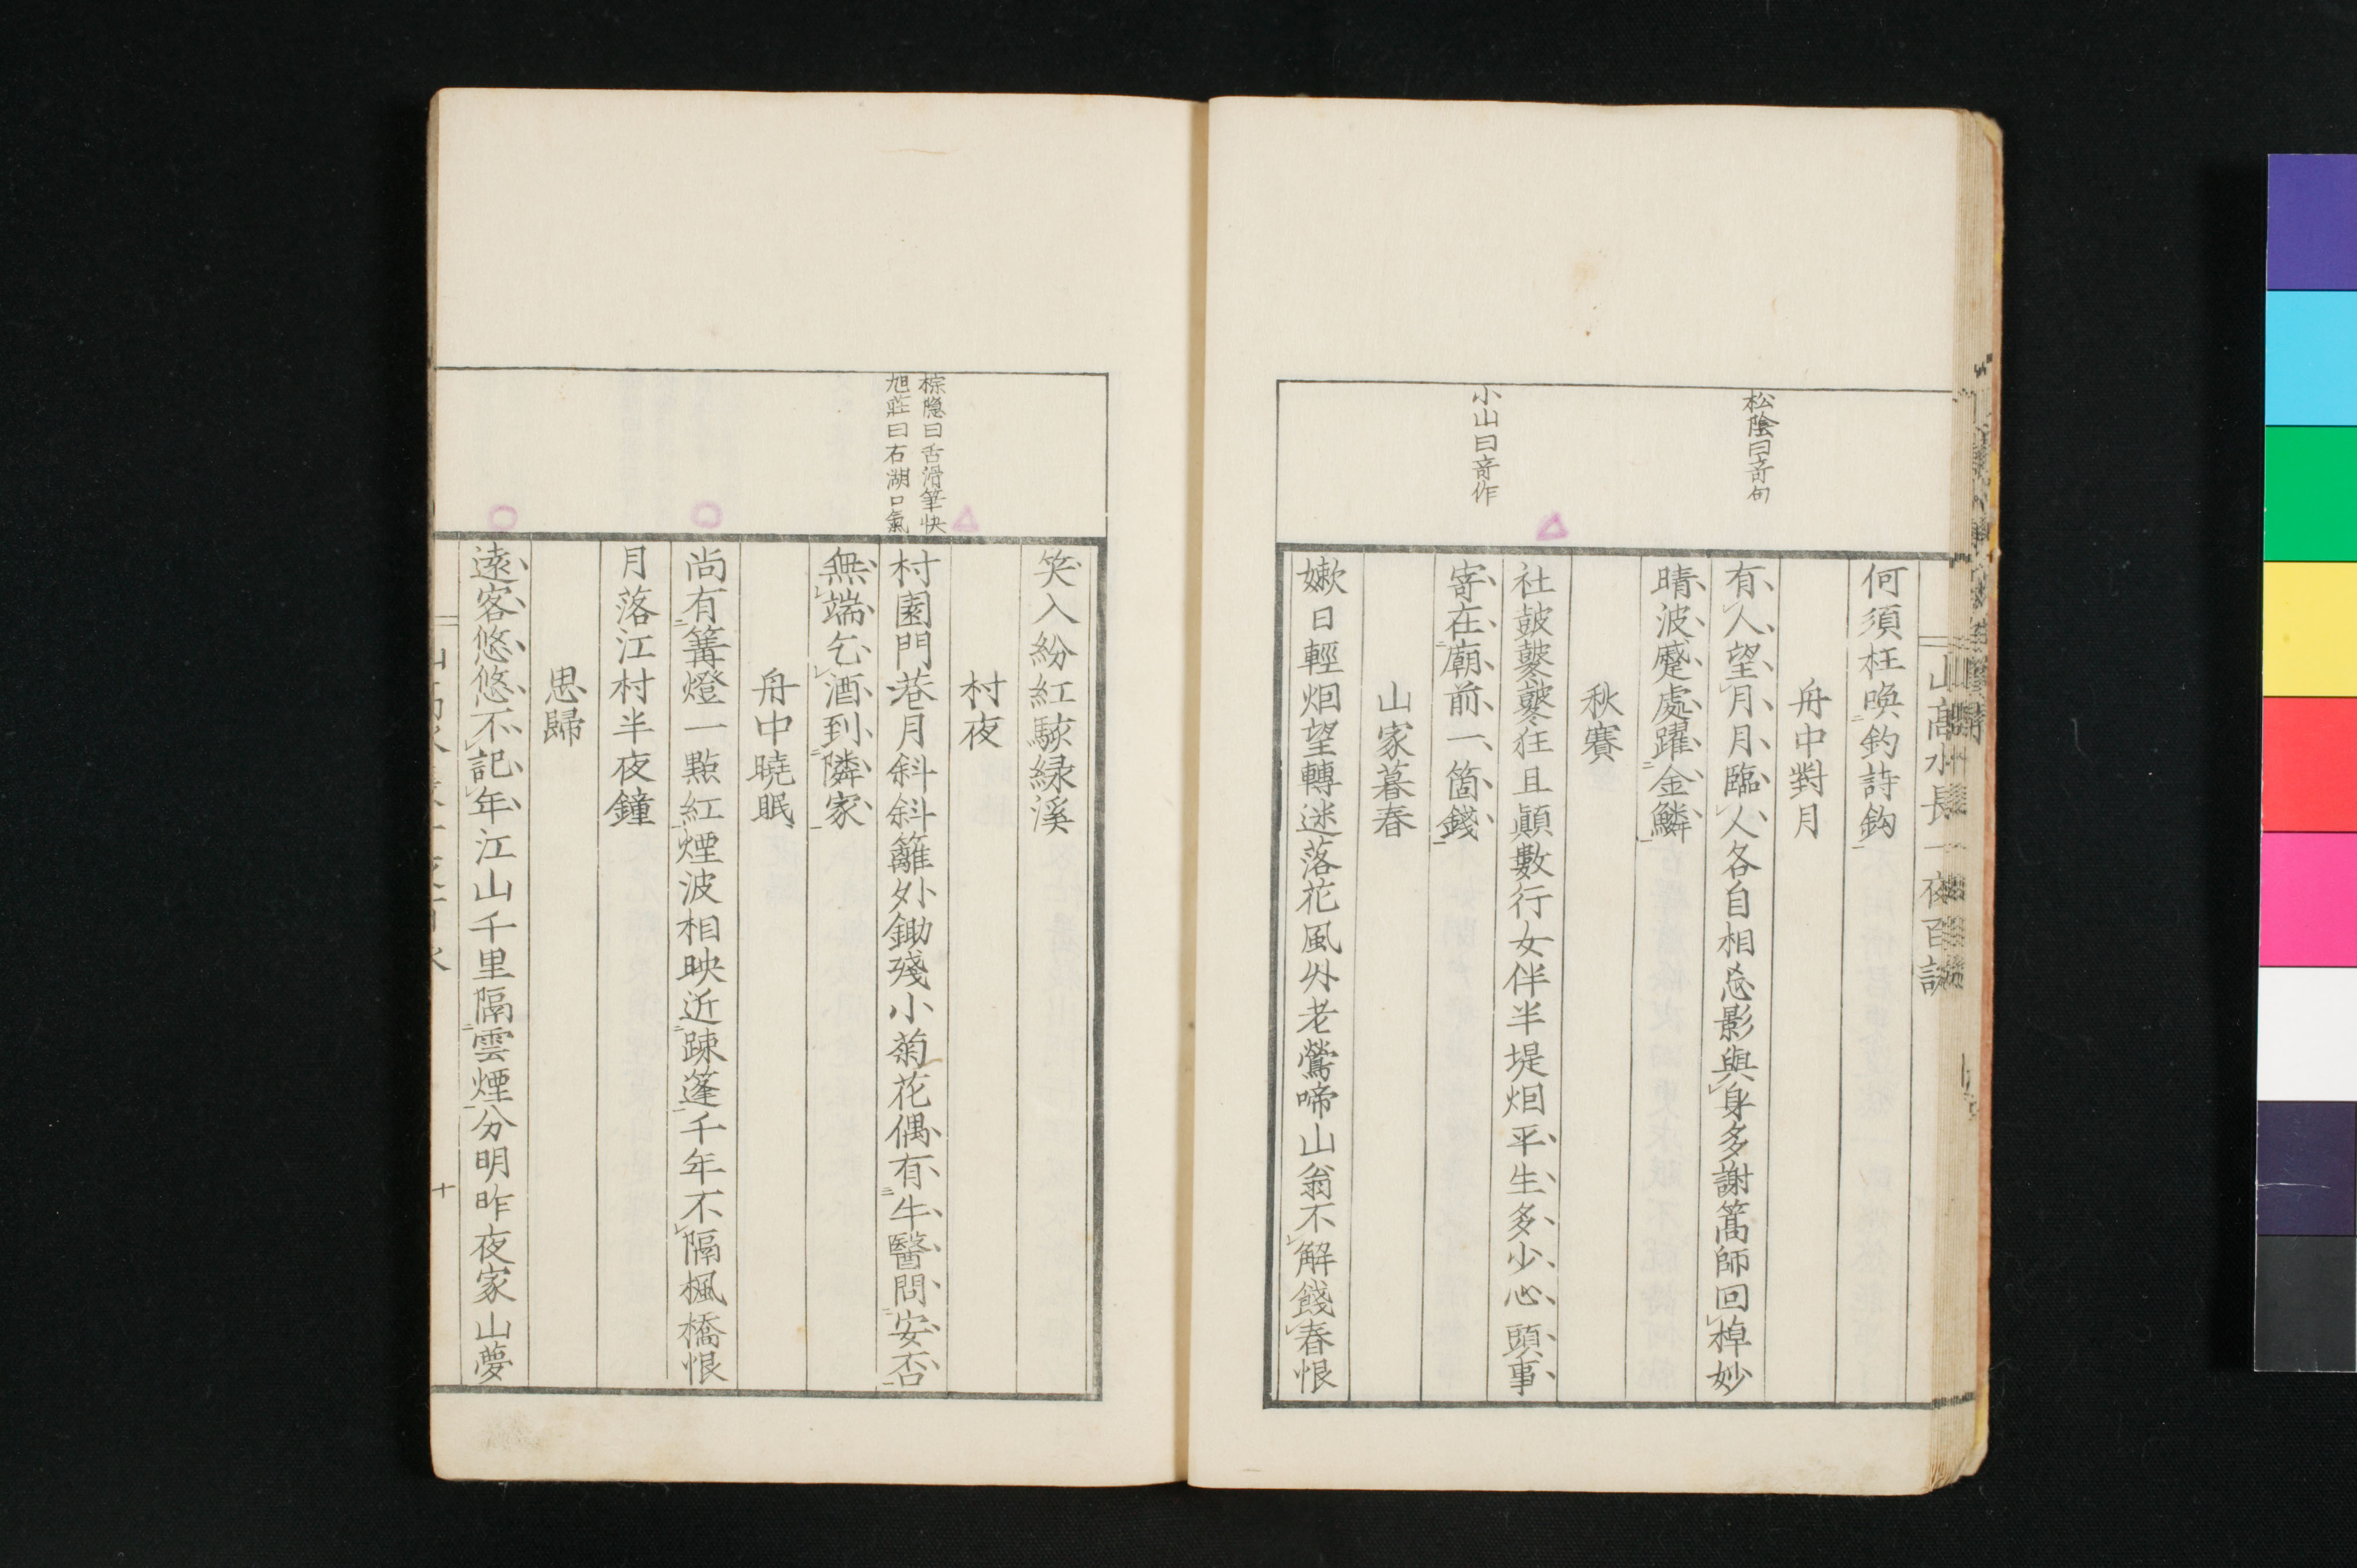 山高水長 一夜百詠
何須枉喚釣詩鈎
舟中對月
松陰曰奇句
有人望月月臨人各自相忘影與身多謝篙師回棹妙
晴波蹙處躍金鱗
秋賽
社鼓鼕鼕狂且顛數行女伴半堤烟平生多少心頭事
小山曰奇作
寄在廟前一箇錢
山家暮春
嫩日輕烟望轉迷落花風外老鶯啼山翁不解餞春恨
笑入紛紅駭緑溪
村夜
棕隱曰舌滑筆快
旭莊曰石湖口氣
村園門巷月斜斜籬外鋤殘小菊花偶有牛醫問安否
無端乞酒到隣家
舟中曉眠
尚有篝燈一點紅煙波相映近疎篷千年不隔楓橋恨
月落江村半夜鐘
思歸
遠客悠悠不記年江山千里隔雲煙分明昨夜家山夢
十